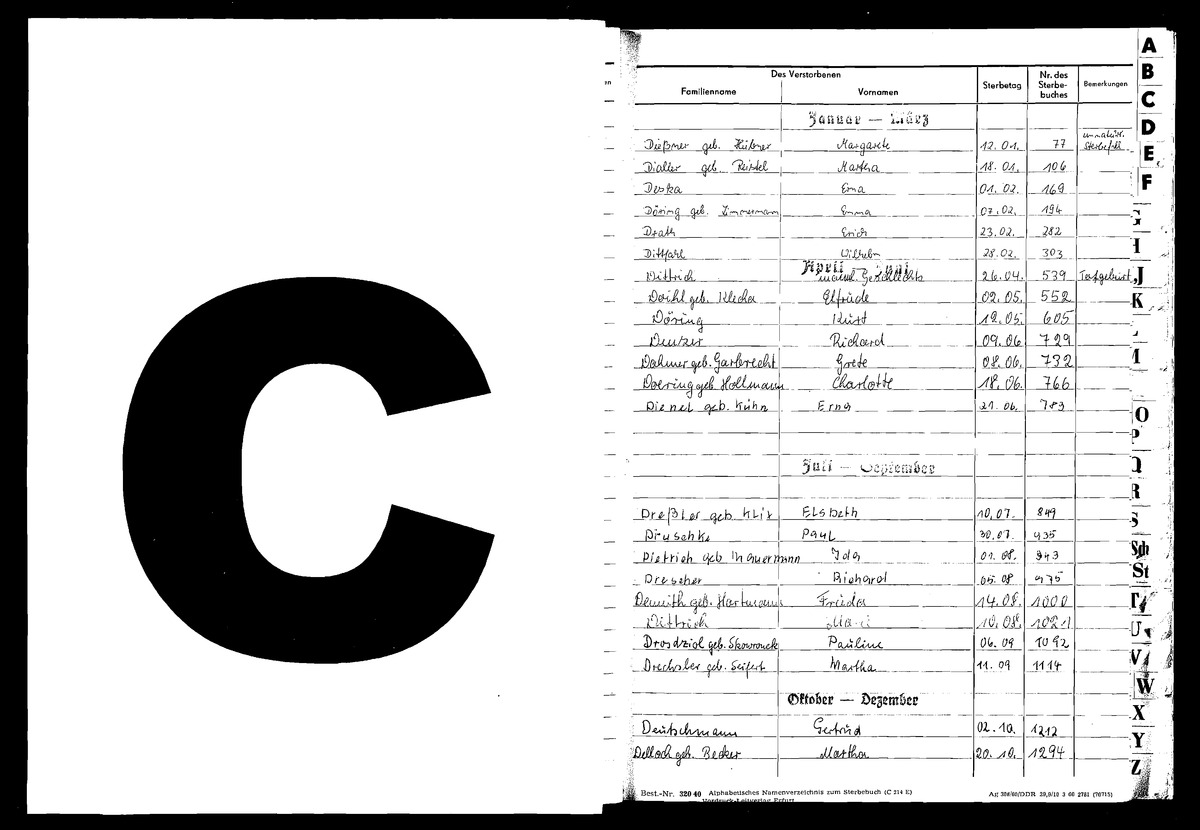 C
Des Verstorbenen
Familienname Vornamen Sterbetag Nr. des Sterbe-buches Bemerkungen
Januar — März
Dießner geb. Hübner Margarete 12.01. 77 Sterbefall
Dialler geb. Martha 18.01. 106
Deska Erna 01.02. 169
Döring geb. Zimmermann Emma 07.02. 194
Drath Erich 23.02. 282
Ditfarl Wilhelm 28.02. 303
April — Juni
Dittrich männl. Geschlechts 26.04. 539 Totgeburt
Doihl geb. Klecha Elfriede 02.05. 552
Döring Kurt 12.05. 605
Deutzer Richard 09.06 729
Dahmer geb. Garbrecht Grete 08.06. 732
Doering geb. Holtmann Charlotte 18.06. 766
Dienel geb. Kühn Erna 21.06. 783
Juli — September
Dreßler geb. Klix Elsbeth 10.07. 849
Druschke Paul 30.07. 935
Dietrich geb Mauermann Ida 01.08. 943
Drescher Richard 05.08 975
Demuth geb. Hartmann Frieda 14.08. 1000
Dittrich 10.08. 1021
Drosdziol geb. Skowronek Pauline 06.09 1092
Drechsler geb. Seifert Martha 11.09 1114
Oktober — Dezember
Deutschmann Gertrud 02.10. 1212
Delloch geb. Becker Martha 20.10. 1294
Best.-Nr. 320 40 Alphabetisches Namenverzeichnis zum Sterbebuch (C 214 E)
Vordruck-Leitverlag Erfurt
Ag 306/60/DDR
A
B
C
D
E
F
G
H
J
K
L
M
O
P
Q
R
S
Sch
St
T
U
V
W
X
Y
Z